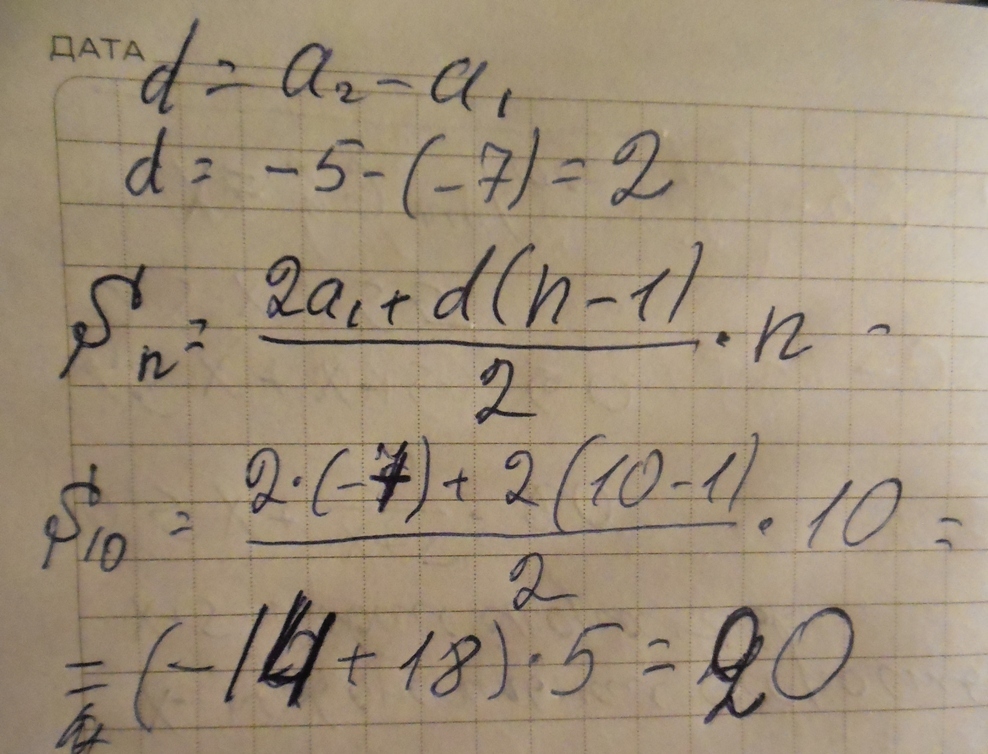 ДАТА
d = a₂ - a₁
d = -5-(-7) = 2
Sₙ = (2a₁ + d(n-1))/2 · n =
S₁₀ = (2·(-7) + 2(10-1))/2 · 10 =
= (-14 + 18)·5 = 20